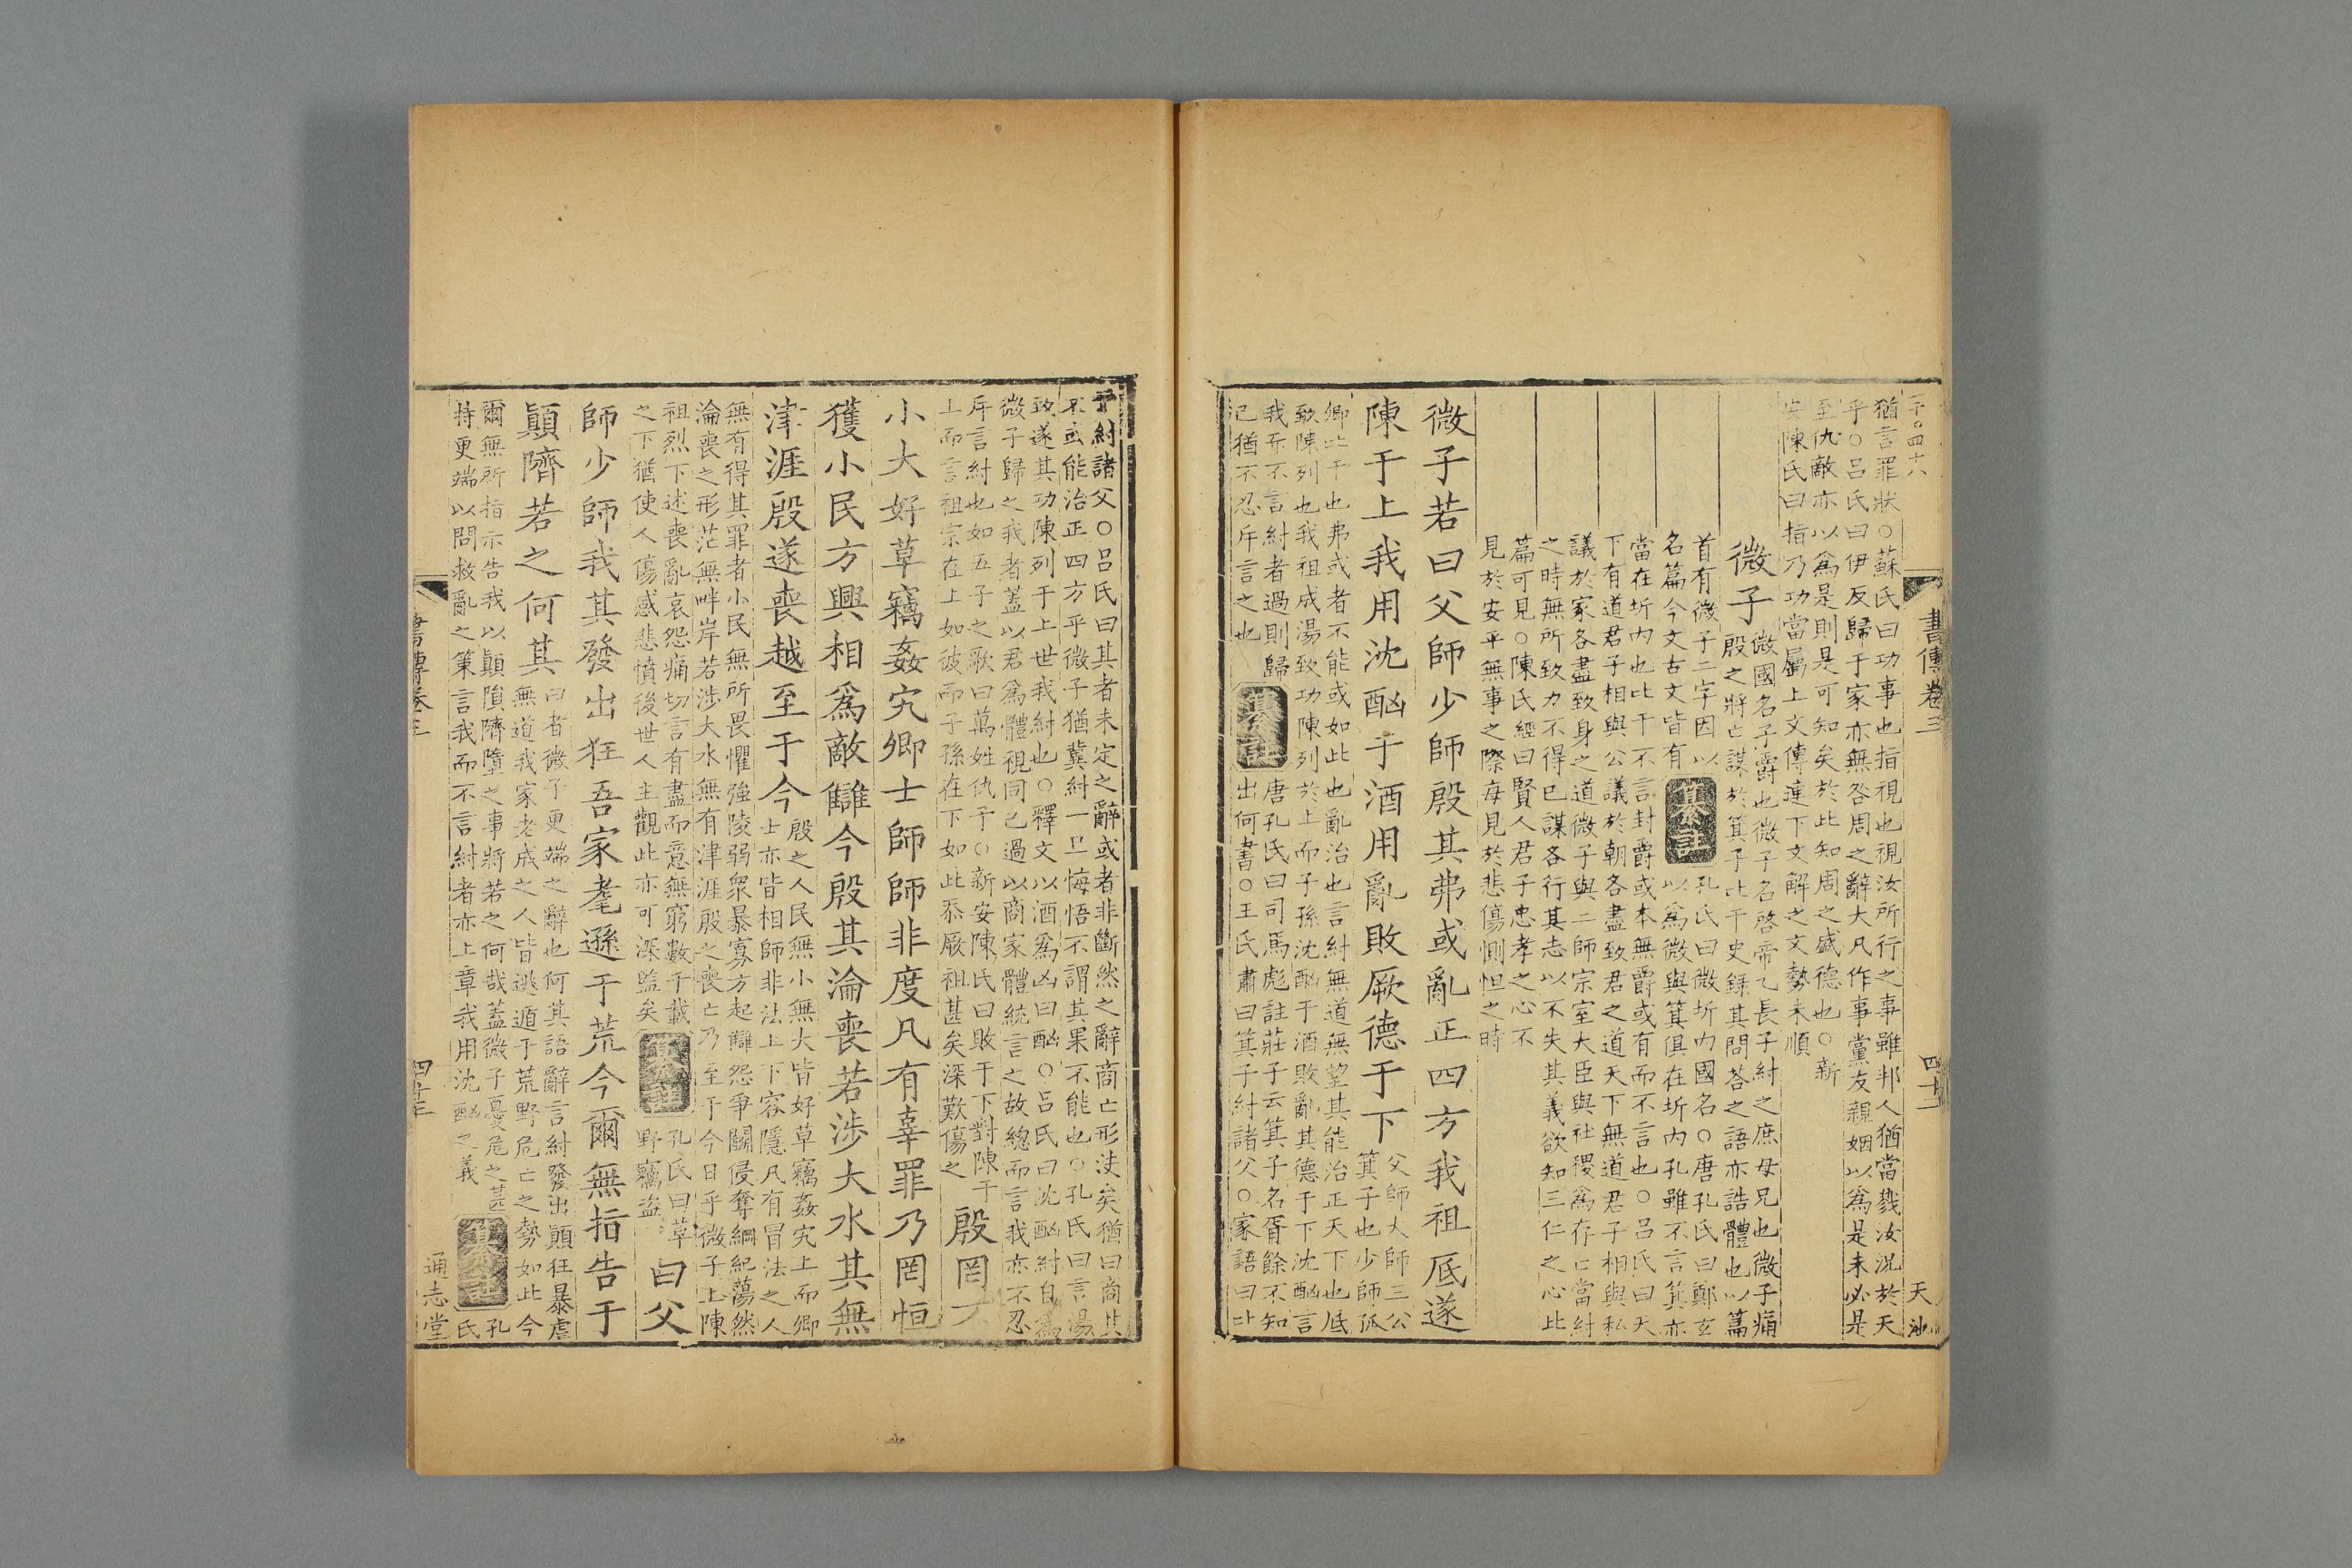 千〇四十八
書傳卷三
四十二
天池
猶言罪狀〇蘇氏曰功事也指視也視汝所行之事雖邦人猶當戮汝況於天
乎〇呂氏曰伊反歸于家亦無咎周之辭大凡作事黨友親姻以爲是未必是
至仇敵亦以爲是則是可知矣於此知周之盛德也〇新
安陳氏曰指乃功當屬上文傳連下文解之文勢未順
微子
微國名子爵也微子名啓帝乙長子紂之庶母兄也微子痛
殷之將亡謀於箕子比干史錄其問荅之語亦誥體也以篇
首有微子二字因以
名篇今文古文皆有
纂註
孔氏曰微圻內國名〇唐孔氏曰鄭玄
以爲微與箕俱在圻內孔雖不言箕亦
當在圻內也比干不言封爵或本無爵或有而不言也〇呂氏曰天
下有道君子相與公議於朝各盡致君之道天下無道君子相與私
議於家各盡致身之道微子與二師宗室大臣與社稷爲存亡當紂
之時無所致力不得已謀各行其志以不失其義欲知三仁之心比
篇可見〇陳氏經曰賢人君子忠孝之心不
見於安平無事之際每見於悲傷惻怛之時
微子若曰父師少師殷其弗或亂正四方我祖厎遂
陳于上我用沈酗于酒用亂敗厥德于下
父師大師三公
箕子也少師孤
卿比干也弗或者不能或如此也亂治也言紂無道無望其能治正天下也厎
致陳列也我祖成湯致功陳列於上而子孫沈酗于酒敗亂其德于下沈酗言
我而不言紂者過則歸
己猶不忍斥言之也
纂註
唐孔氏曰司馬彪註莊子云箕子名胥餘不知
出何書〇王氏肅曰箕子紂諸父〇家語曰比
干紂諸父〇呂氏曰其者未定之辭或者非斷然之辭商亡形決矣猶曰商其
不或能治正四方乎微子猶冀紂一旦悔悟不謂其果不能也〇孔氏曰言湯
致遂其功陳列于上世我紂也〇釋文以酒爲凶曰酗〇呂氏曰沈酗紂自爲
微子歸之我者蓋以君爲體視同己過以商家體統言之故總而言我亦不忍
斥言紂也如五子之歌曰萬姓仇予〇新安陳氏曰敗于下對陳于
上而言祖宗在上如彼而子孫在下如此忝厥祖甚矣深歎傷之
殷罔不
小大好草竊姦宄卿士師師非度凡有辜罪乃罔恒
獲小民方興相爲敵讎今殷其淪喪若涉大水其無
津涯殷遂喪越至于今
殷之人民無小無大皆好草竊姦宄上而卿
士亦皆相師非法上下容隱凡有冒法之人
無有得其罪者小民無所畏懼強陵弱衆暴寡方起讎怨爭鬭侵奪綱紀蕩然
淪喪之形茫無畔岸若涉大水無有津涯殷之喪亡乃至于今日乎微子上陳
祖烈下述喪亂哀怨痛切言有盡而意無窮數千載
之下猶使人傷感悲憤後世人主觀此亦可深監矣
纂註
孔氏曰草
野竊盜
曰父
師少師我其發出狂吾家耄遜于荒今爾無指告予
顚隮若之何其
曰者微子更端之辭也何其語辭言紂發出顚狂暴虐
無道我家老成之人皆逃遁于荒野危亡之勢如此今
爾無所指示告我以顚隕隮墜之事將若之何哉蓋微子憂危之甚
特更端以問救亂之策言我而不言紂者亦上章我用沈酗之義
纂註
孔
氏
書傳卷三
四十三
通志堂